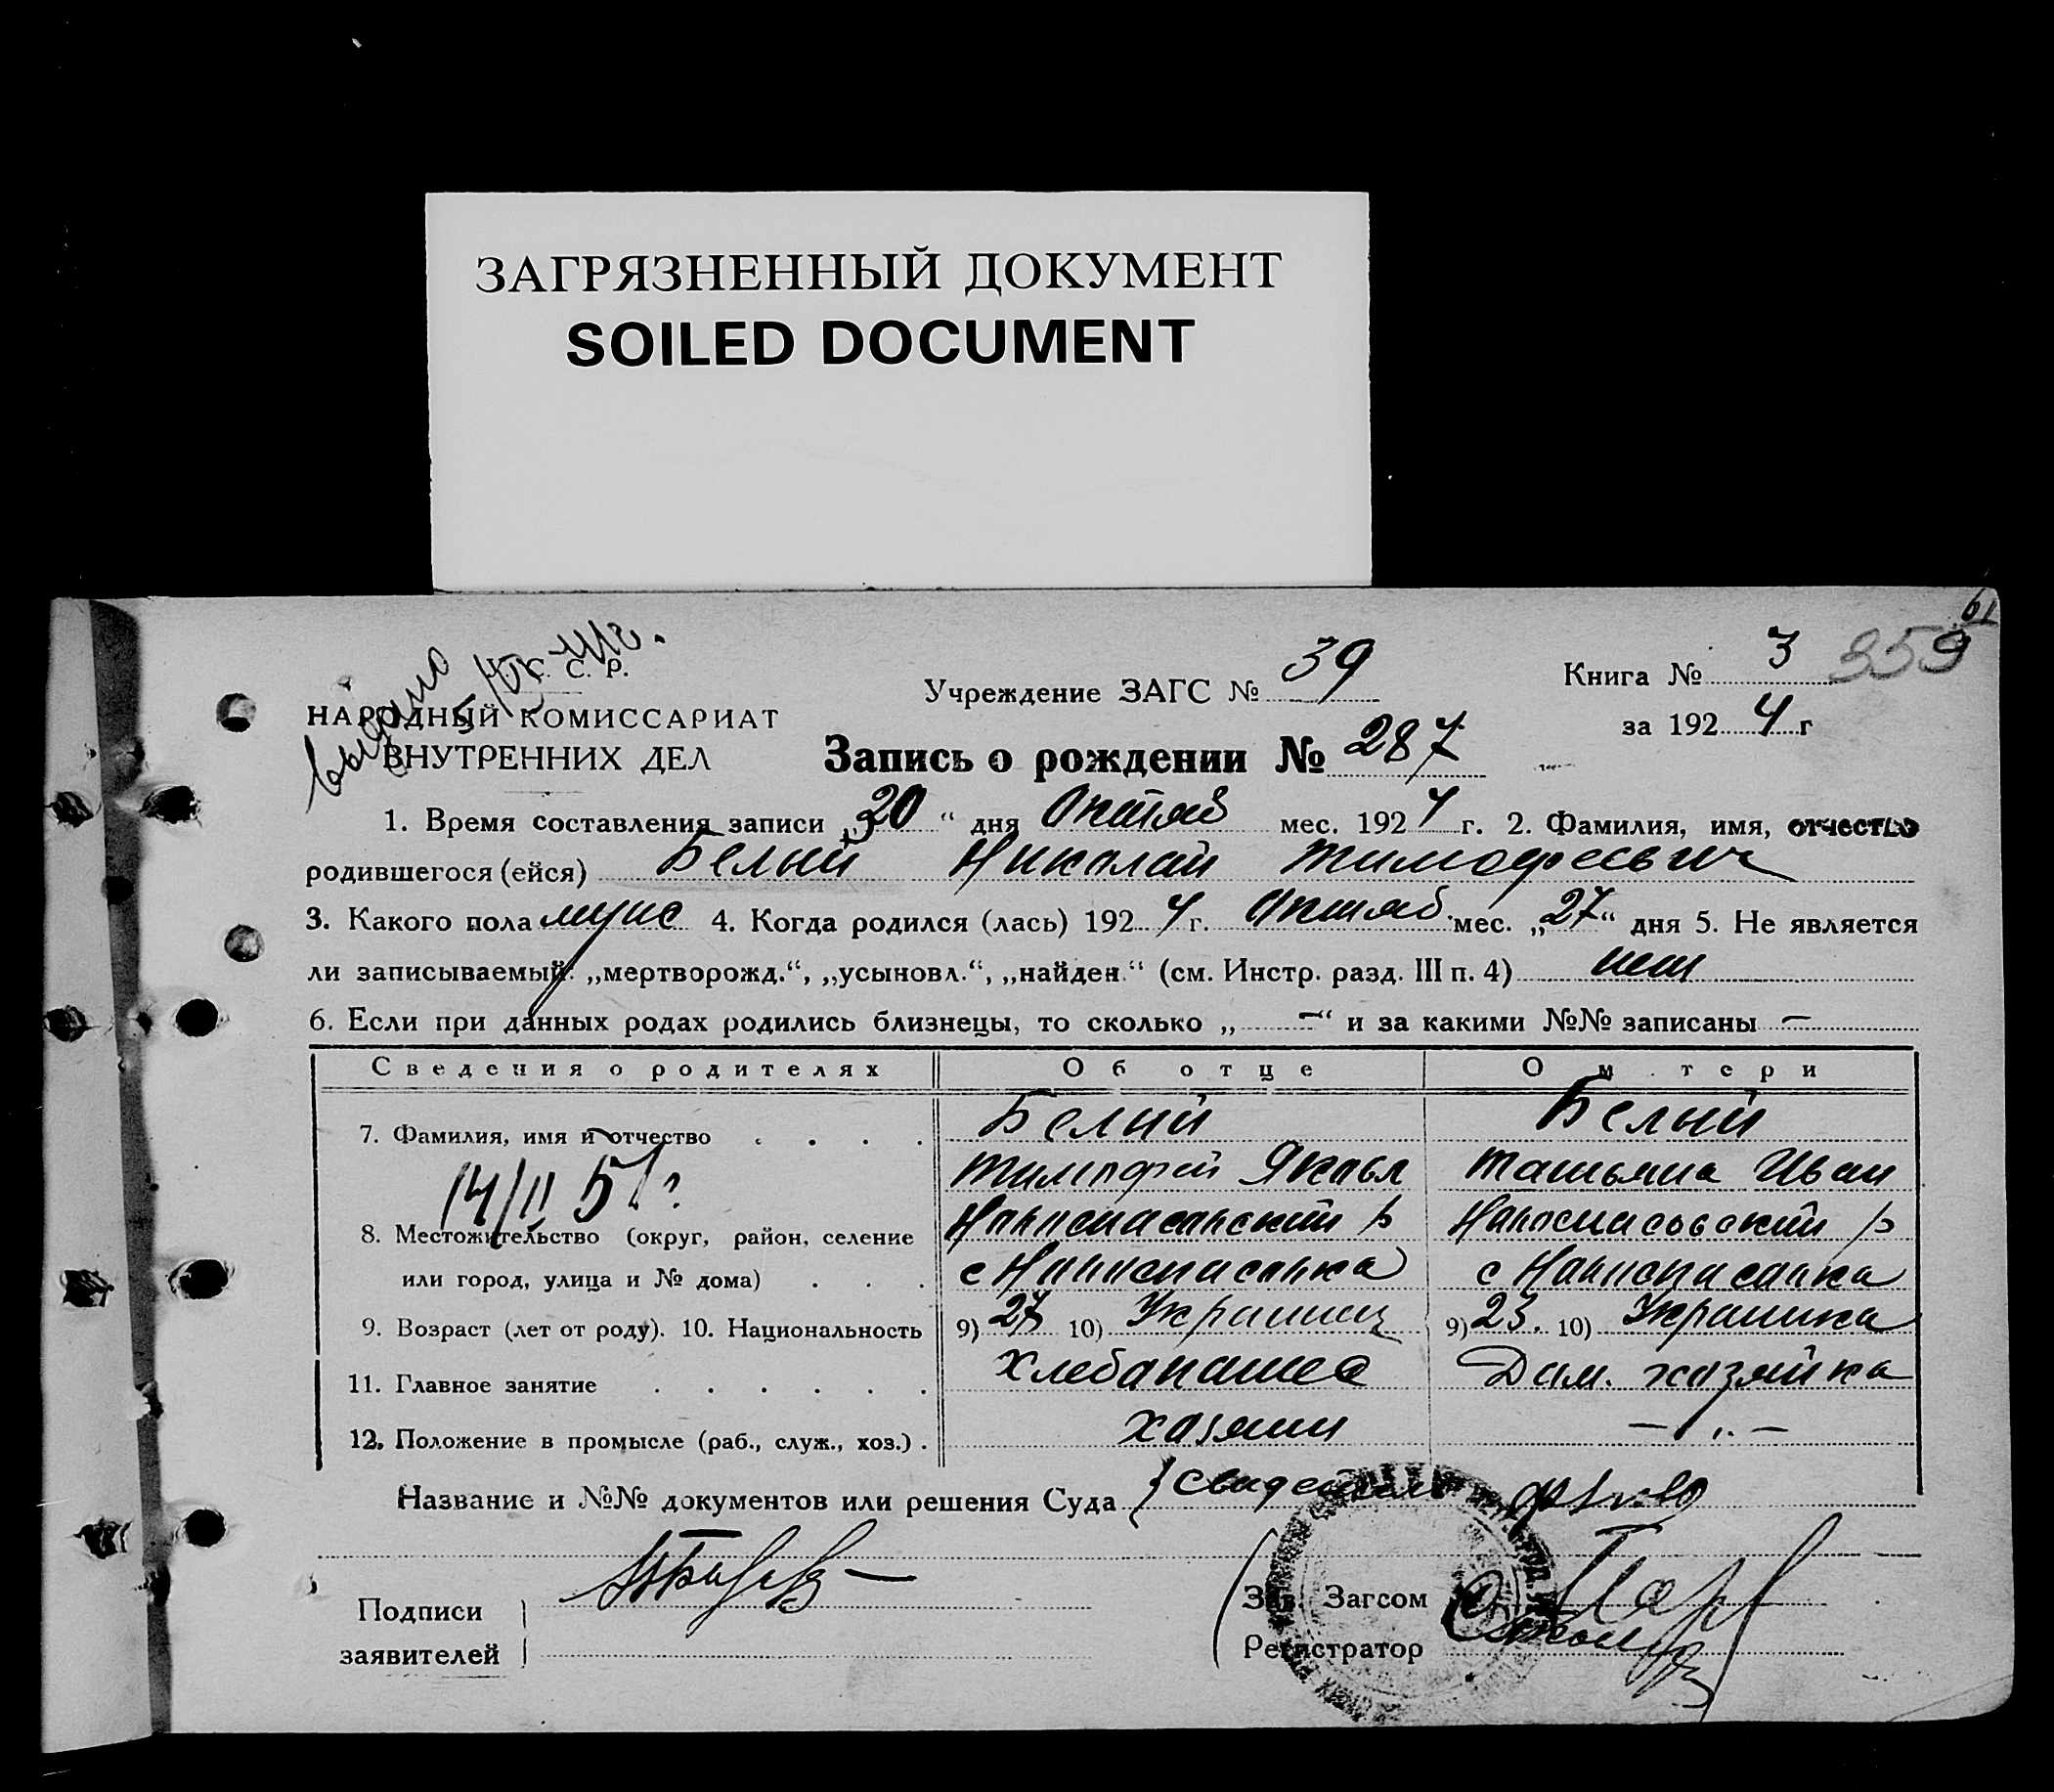 ЗАГРЯЗНЕННЫЙ ДОКУМЕНТ
SOILED DOCUMENT
61
С. Р.
НАРОДНЫЙ КОМИССАРИАТ
ВНУТРЕННИХ ДЕЛ
выдано
Учреждение ЗАГС № 39
Книга № 3 359
за 192 4 г
Запись о рождении № 287
1. Время составления записи „30“ дня Октяб мес. 192 4 г. 2. Фамилия, имя, отчество
родившегося (ейся) Белый Николай Тимофеевич
3. Какого пола мужс 4. Когда родился (лась) 192 4 г. Октяб. мес. „27“ дня 5. Не является
ли записываемый „мертворожд.“, „усыновл.“, „найден.“ (см. Инстр. разд. III п. 4) нет
6. Если при данных родах родились близнецы, то сколько „ — “ и за какими №№ записаны —
Сведения о родителях Об отце О м тери
7. Фамилия, имя и отчество Белый Белый
Тимофей Яковл Татьяна Иван
14/II 51
8. Местожительство (округ, район, селение
или город, улица и № дома)
9. Возраст (лет от роду). 10. Национальность 9) 27 10) Украинец 9) 23. 10) Украинка
11. Главное занятие Хлебопашес Дом. хозяйка
12. Положение в промысле (раб., служ., хоз.) хозяин — „ —
Название и №№ документов или решения Суда
Подписи
заявителей
Зав. Загсом
Регистратор